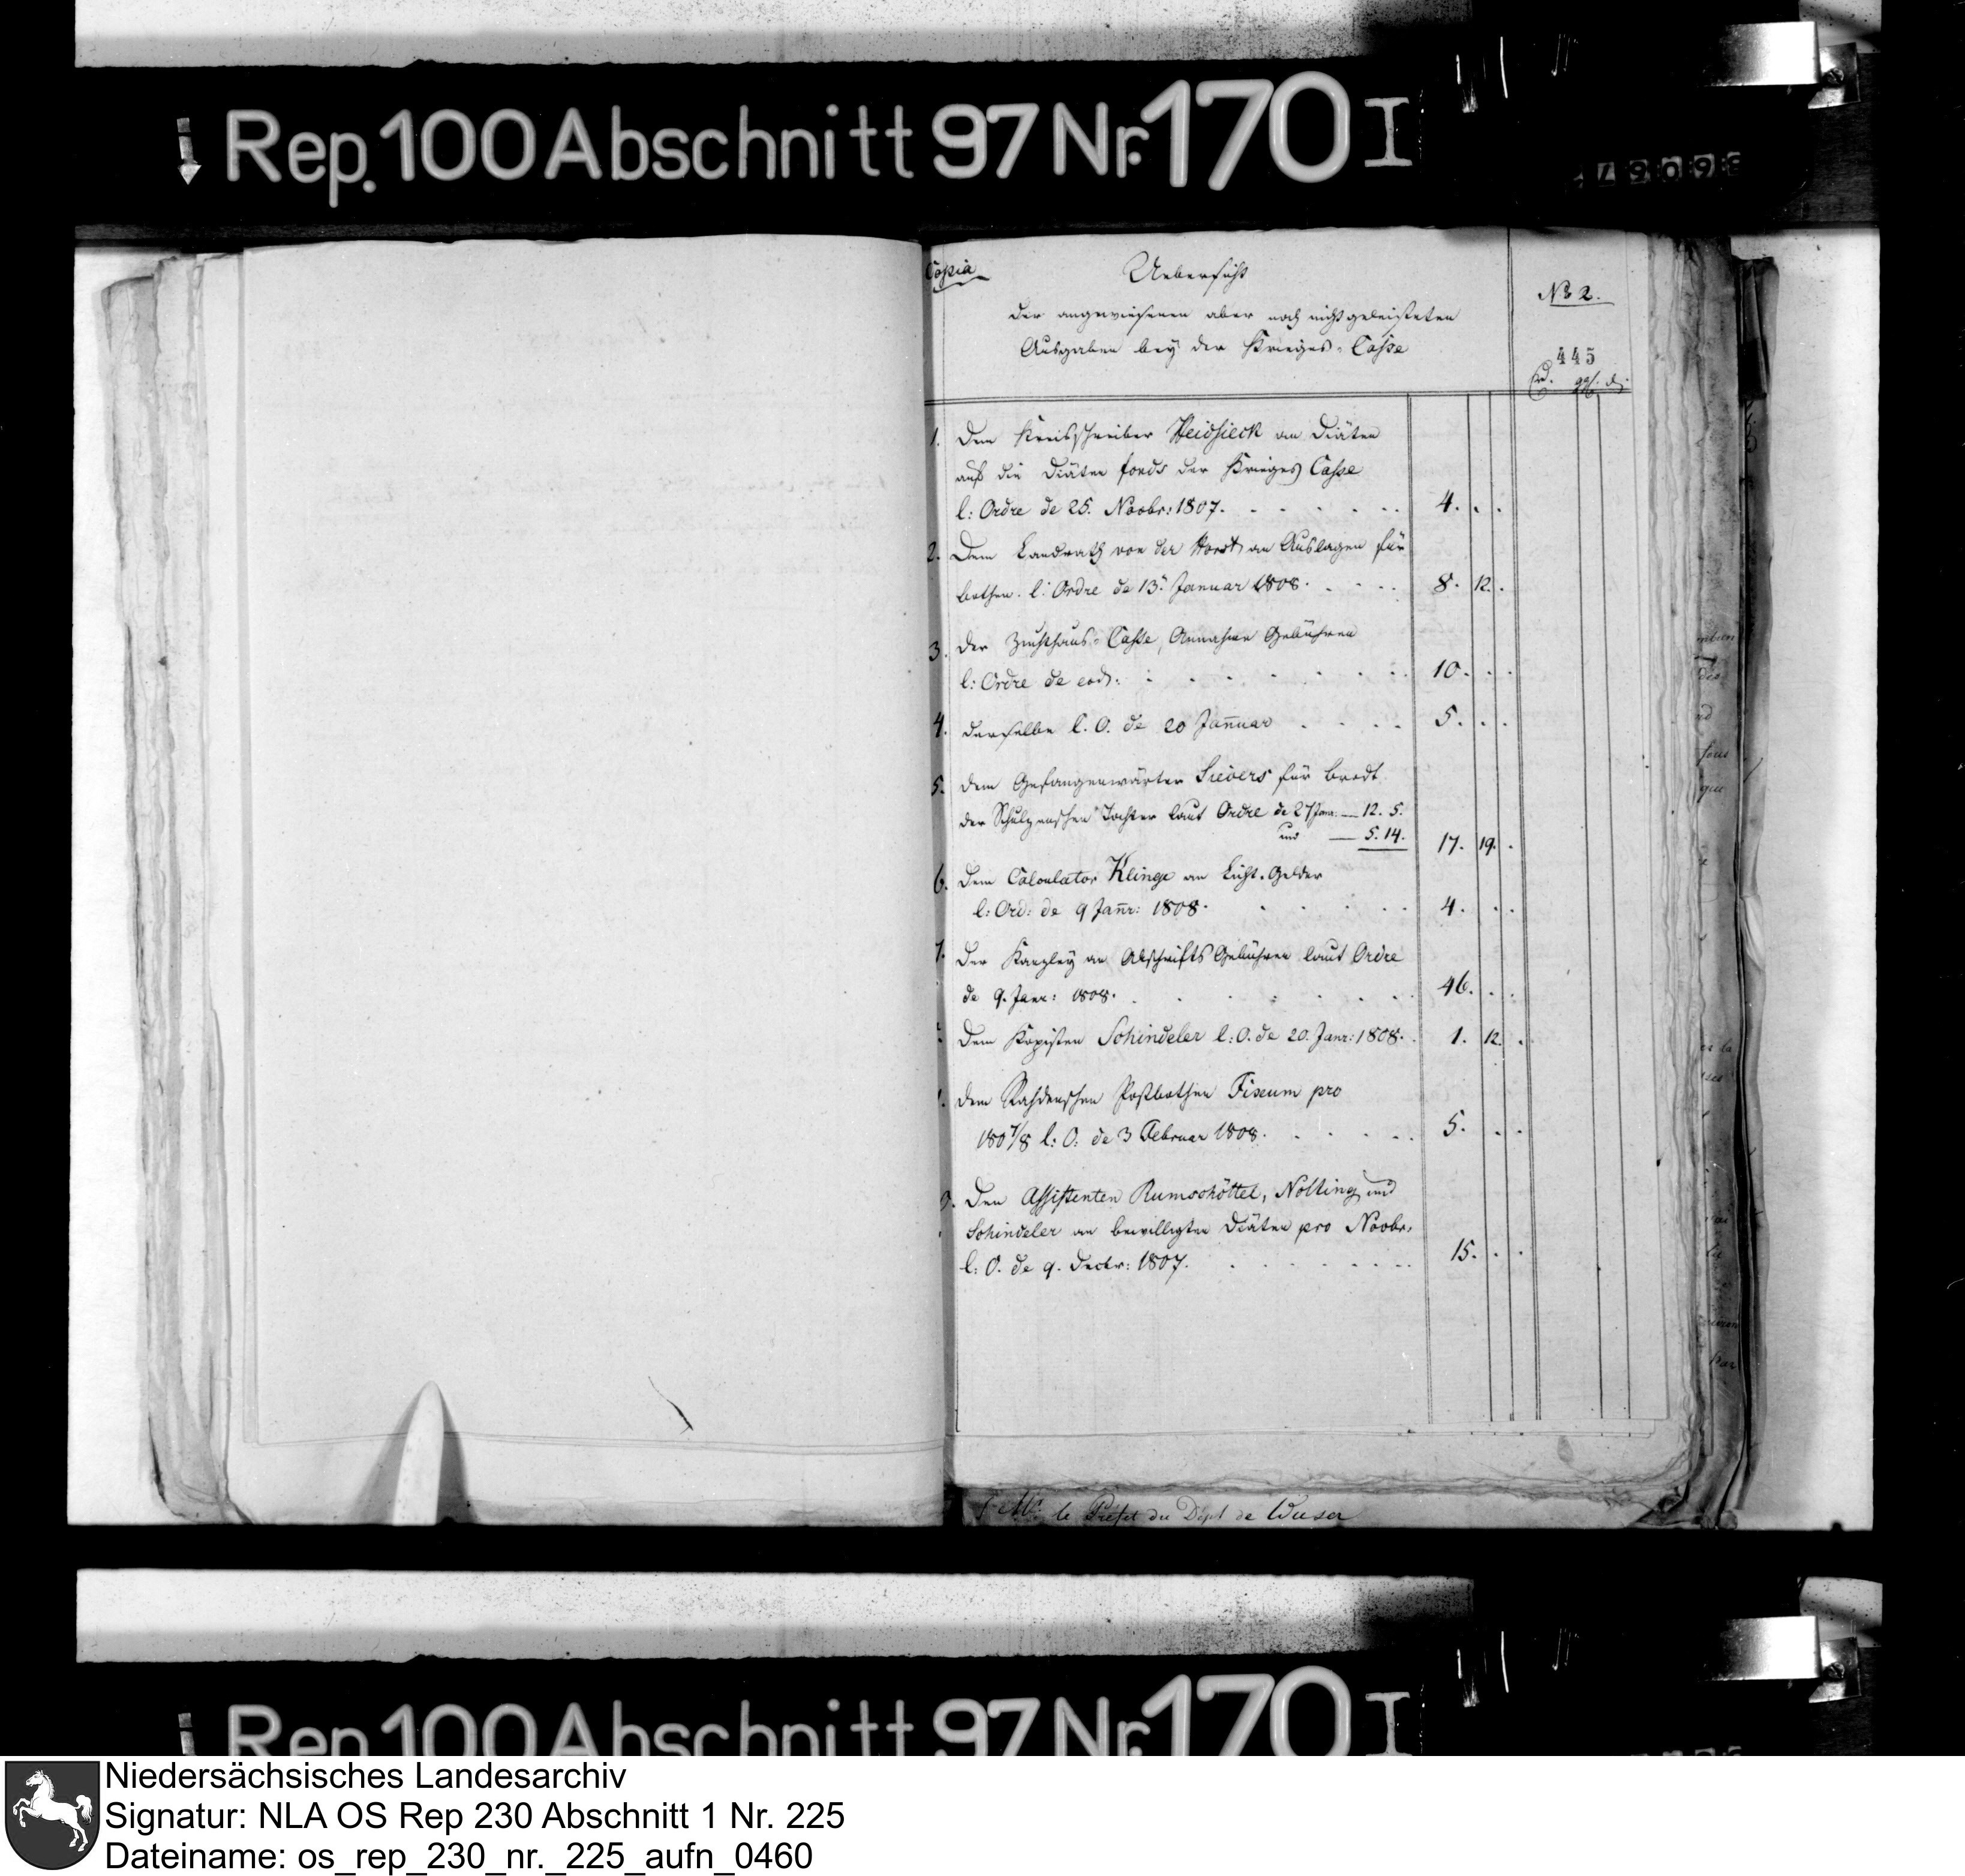 Rep. 100 Abschnitt 97 Nr. 170 I
Copia
Uebersicht
der angewiesenen aber noch nicht geleisteten
Ausgaben bey der Krieges-Casse
No 2.
445
1. Dem Kreisschreiber Heidsieck an Diäten
auf die Diäten fonds der Krieges Casse
l: Ordre de 25. Novbr: 1807. 4. . .
2. Dem Landrath von der Horst an Auslagen für
bothen. l: Ordre de 13t Januar 1808. 8. 12. .
3. Der Zuchthaus-Casse, Annahme Gebühren
l: Ordre de eod: 10. . .
4. derselbe l. O. de 20 Januar 5. . .
5. dem Gefangenwärter Sievers für Brodt
der Schulzenschen Tochter laut Ordre de 27 Janr. — 12. 5.
und — 5. 14. 17. 19. .
6. Dem Calculator Klinge an Licht-Gelder
l: Ord: de 9 Janr: 1808. 4. . .
7. Der Kanzley an Abschrifts Gebühren laut Ordre
de 9. Janr: 1808. 46. . .
Dem Kopisten Schindeler l: O. de 20. Janr: 1808. 1. 12. .
dem Rahdenschen Postbothen Fixum pro
1807/8 l: O: de 3 Februar 1808. 5. . .
Den Assistenten Rumschöttel, Nolting und
Schindeler an bewilligten Diäten pro Novbr.
l: O. de 9. Decbr: 1807. 15. . .
Mr. le Préfet du Dépt de Weser
Rep. 100 Abschnitt 97 Nr. 170 I
Niedersächsisches Landesarchiv
Signatur: NLA OS Rep 230 Abschnitt 1 Nr. 225
Dateiname: os_rep_230_nr._225_aufn_0460